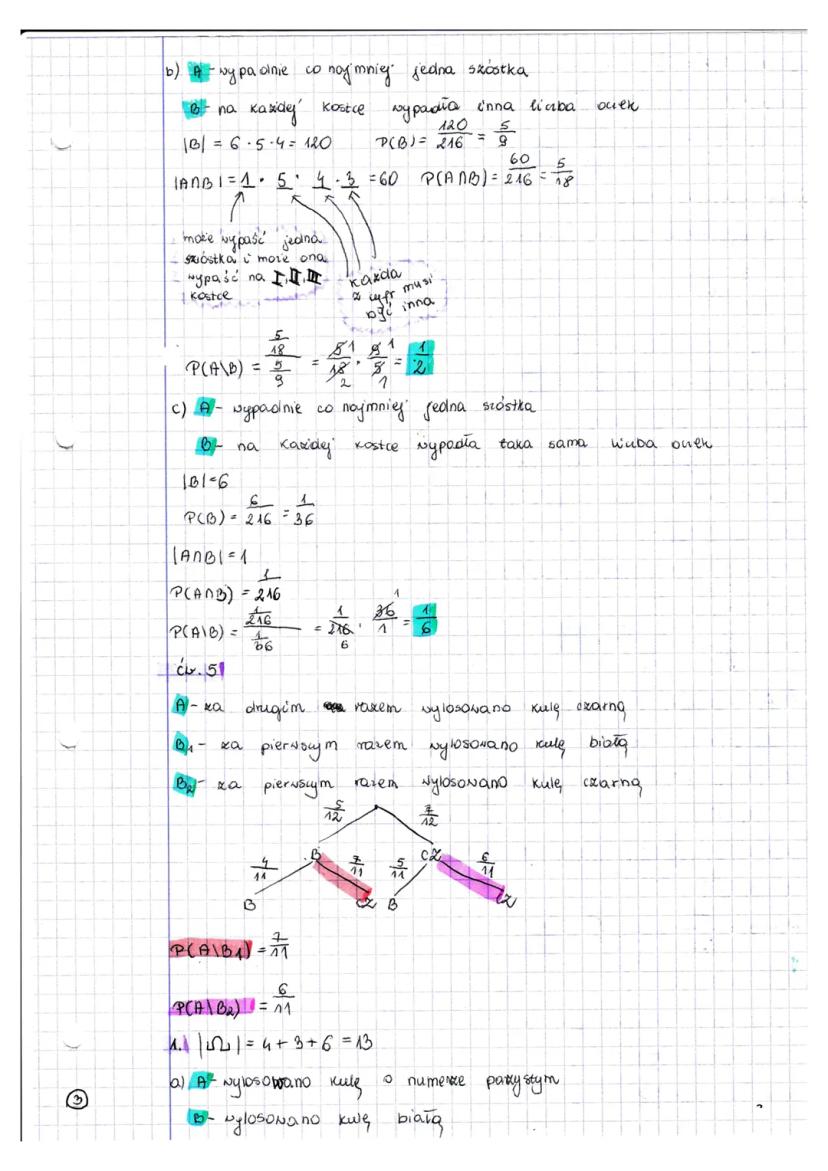 b) A - wypadnie co najmniej jedna szóstka
B - na każdej kostce wypadła inna liczba oczek
|B| = 6 · 5 · 4 = 120 P(B) = 120/216 = 5/9
|A∩B| = 1 · 5 · 4 · 3 = 60 P(A∩B) = 60/216 = 5/18
może wypaść jedna
szóstka i może ona
wypaść na I, II, III
kostce
każda
z cyfr musi
być inna
P(A\B) = 5/18 / 5/9 = 5 1/18 2 · 9 1/5 1 = 1/2
c) A - wypadnie co najmniej jedna szóstka
B - na każdej kostce wypadła taka sama liczba oczek
|B| = 6
P(B) = 6/216 = 1/36
|A∩B| = 1
P(A∩B) = 1/216
P(A\B) = 1/216 / 1/36 = 1/216 6 · 36 1/1 = 1/6
ćw. 5
A - za drugim razem wylosowano kulę czarną
B1 - za pierwszym razem wylosowano kulę białą
B2 - za pierwszym razem wylosowano kulę czarną
5/12 7/12
B CZ
4/11 7/11 5/11 6/11
B CZ B CZ
P(A\B1) = 7/11
P(A\B2) = 6/11
1. |Ω| = 4 + 3 + 6 = 13
a) A - wylosowano kulę o numerze parzystym
B - wylosowano kulę białą
3